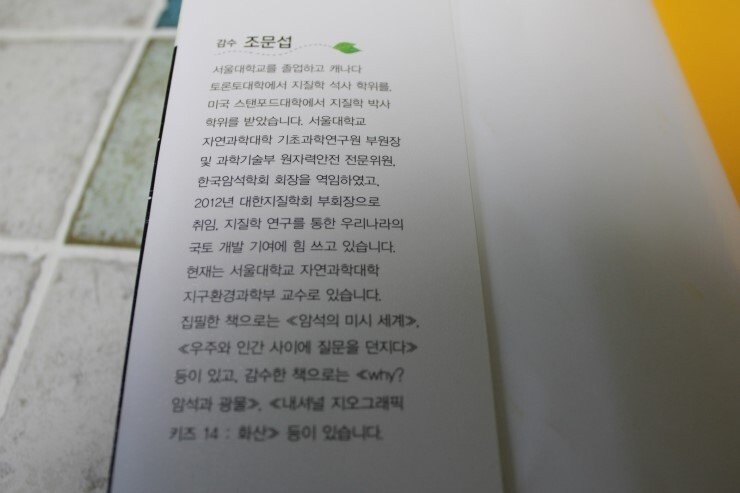 감수 조문섭
서울대학교를 졸업하고 캐나다
토론토대학에서 지질학 석사 학위를,
미국 스탠포드대학에서 지질학 박사
학위를 받았습니다. 서울대학교
자연과학대학 기초과학연구원 부원장
및 과학기술부 원자력안전 전문위원,
한국암석학회 회장을 역임하였고,
2012년 대한지질학회 부회장으로
취임, 지질학 연구를 통한 우리나라의
국토 개발 기여에 힘 쓰고 있습니다.
현재는 서울대학교 자연과학대학
지구환경과학부 교수로 있습니다.
집필한 책으로는 ≪암석의 미시 세계≫,
≪우주와 인간 사이에 질문을 던지다≫
등이 있고, 감수한 책으로는 ≪why?
암석과 광물≫, ≪내셔널 지오그래픽
키즈 14 : 화산≫ 등이 있습니다.